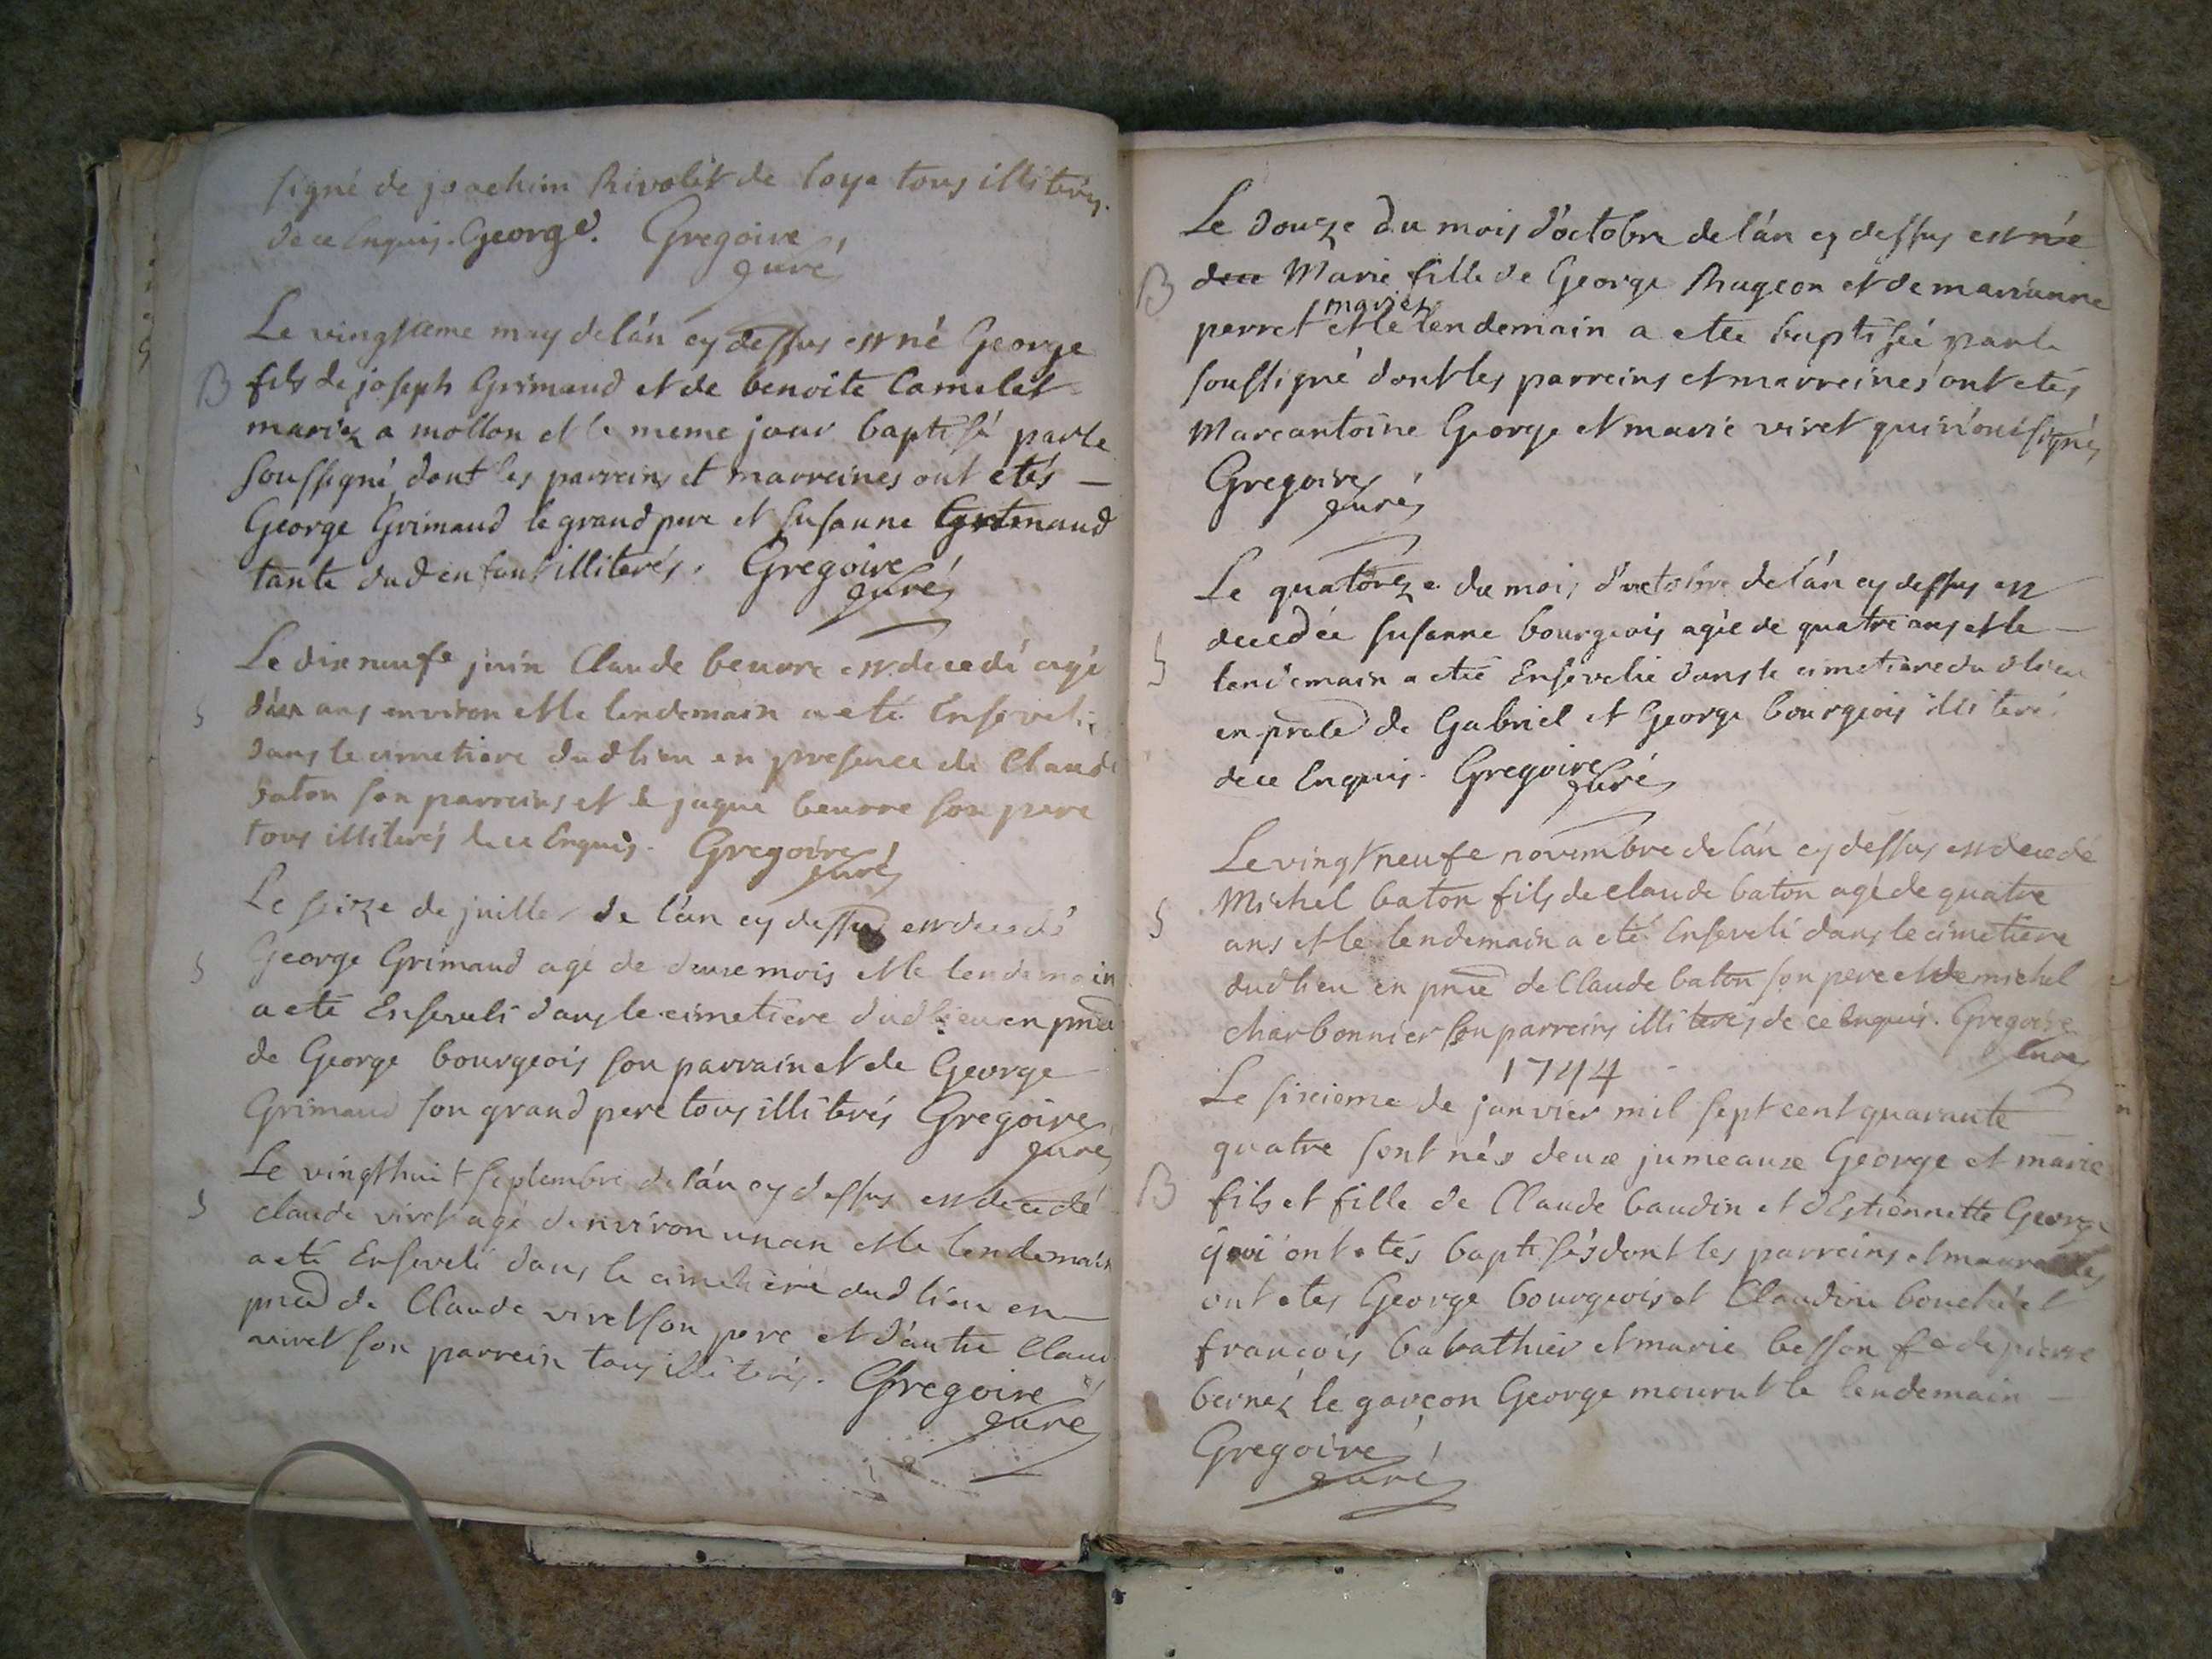 signé de joachim Rivolet de loye tous illiterés.
de ce Enquis. George. Gregoire
curé
Le vingtieme may de lán cy dessus est né George
B
fils de joseph Grimaud et de benoite Camelet
mariez a mollon et le meme jour baptisé par le
soussigné dont les parreins et marreines ont etés —
George Grimaud le grand pere et susanne Grimaud
tante dud enfant illiterés. Gregoire
curé
Le dix neufe juin Claude beurre est decedé agé
S
ans environ et le lendemain a eté Enseveli
dans le cimetiere dud lieu en presence de Claude
baton son parreins et de jaque beurre son pere
tous illiterés de ce Enquis. Gregoire
curé
Le seize de juillet de l'án cy dessus est decedé
S
George Grimaud agé de deux mois et le lendemain
a eté Enseveli dans le cimetiere dud lieu en pnce
de George bourgeois son parrain et de George
Grimaud son grand pere tous illiterés Gregoire
curé
Le vingt huit septembre de lán cy dessus est decedé
S
claude viret agé denviron un an et le lendemain
a eté Enseveli dans le cimetiere dud lieu en
pnce de Claude viret son pere et d'autre Claud
viret son parrein tous illiterés. Gregoire
curé
Le douze du mois d'octobre de lán cy dessus est née
B
dece Marie fille de George Rugeon et de marianne
mariéz
perret et le lendemain a etée baptisée par le
soussigné dont les parreins et marreines ont etés
Marcantoine George et marie viret qui n'ont signés
Gregoire
curé
Le quatorze du mois d'octobre de lán cy dessus est
decedée susanne bourgeois agée de quatre ans et le —
S
lendemain a etée Ensevelie dans le cimetiere du d lieu
en pnce de Gabriel et George bourgeois illiteré
de ce Enquis. Gregoire
curé
Le vingt neufe novembre de lán cy dessus est decedé
Michel baton fils de claude baton agé de quatre
S
ans et le lendemain a eté Enseveli dans le cimetiere
dud lieu en pnce de Claude baton son pere et de michel
charbonnier son parreins illiterés de ce Enquis. Gregoire
curé
1744
Le sixieme de janvier mil sept cent quarante
quatre sont nés deux jumeaux George et marie
B
fils et fille de Claude baudin et d'Estiennette George
qui ont etés baptisés dont les parreins et marreines
ont etés George bourgeois et Claudine bouché et
francois babathier et marie besson fe de pierre
bernéz le garçon George mourut le lendemain —
Gregoire
curé